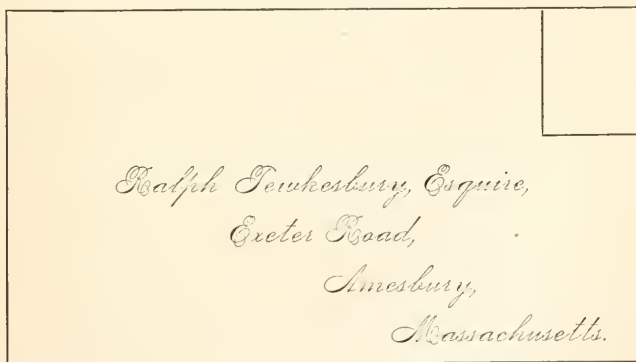 Ralph Tewkesbury, Esquire,
Exeter Road,
Amesbury,
Massachusetts.